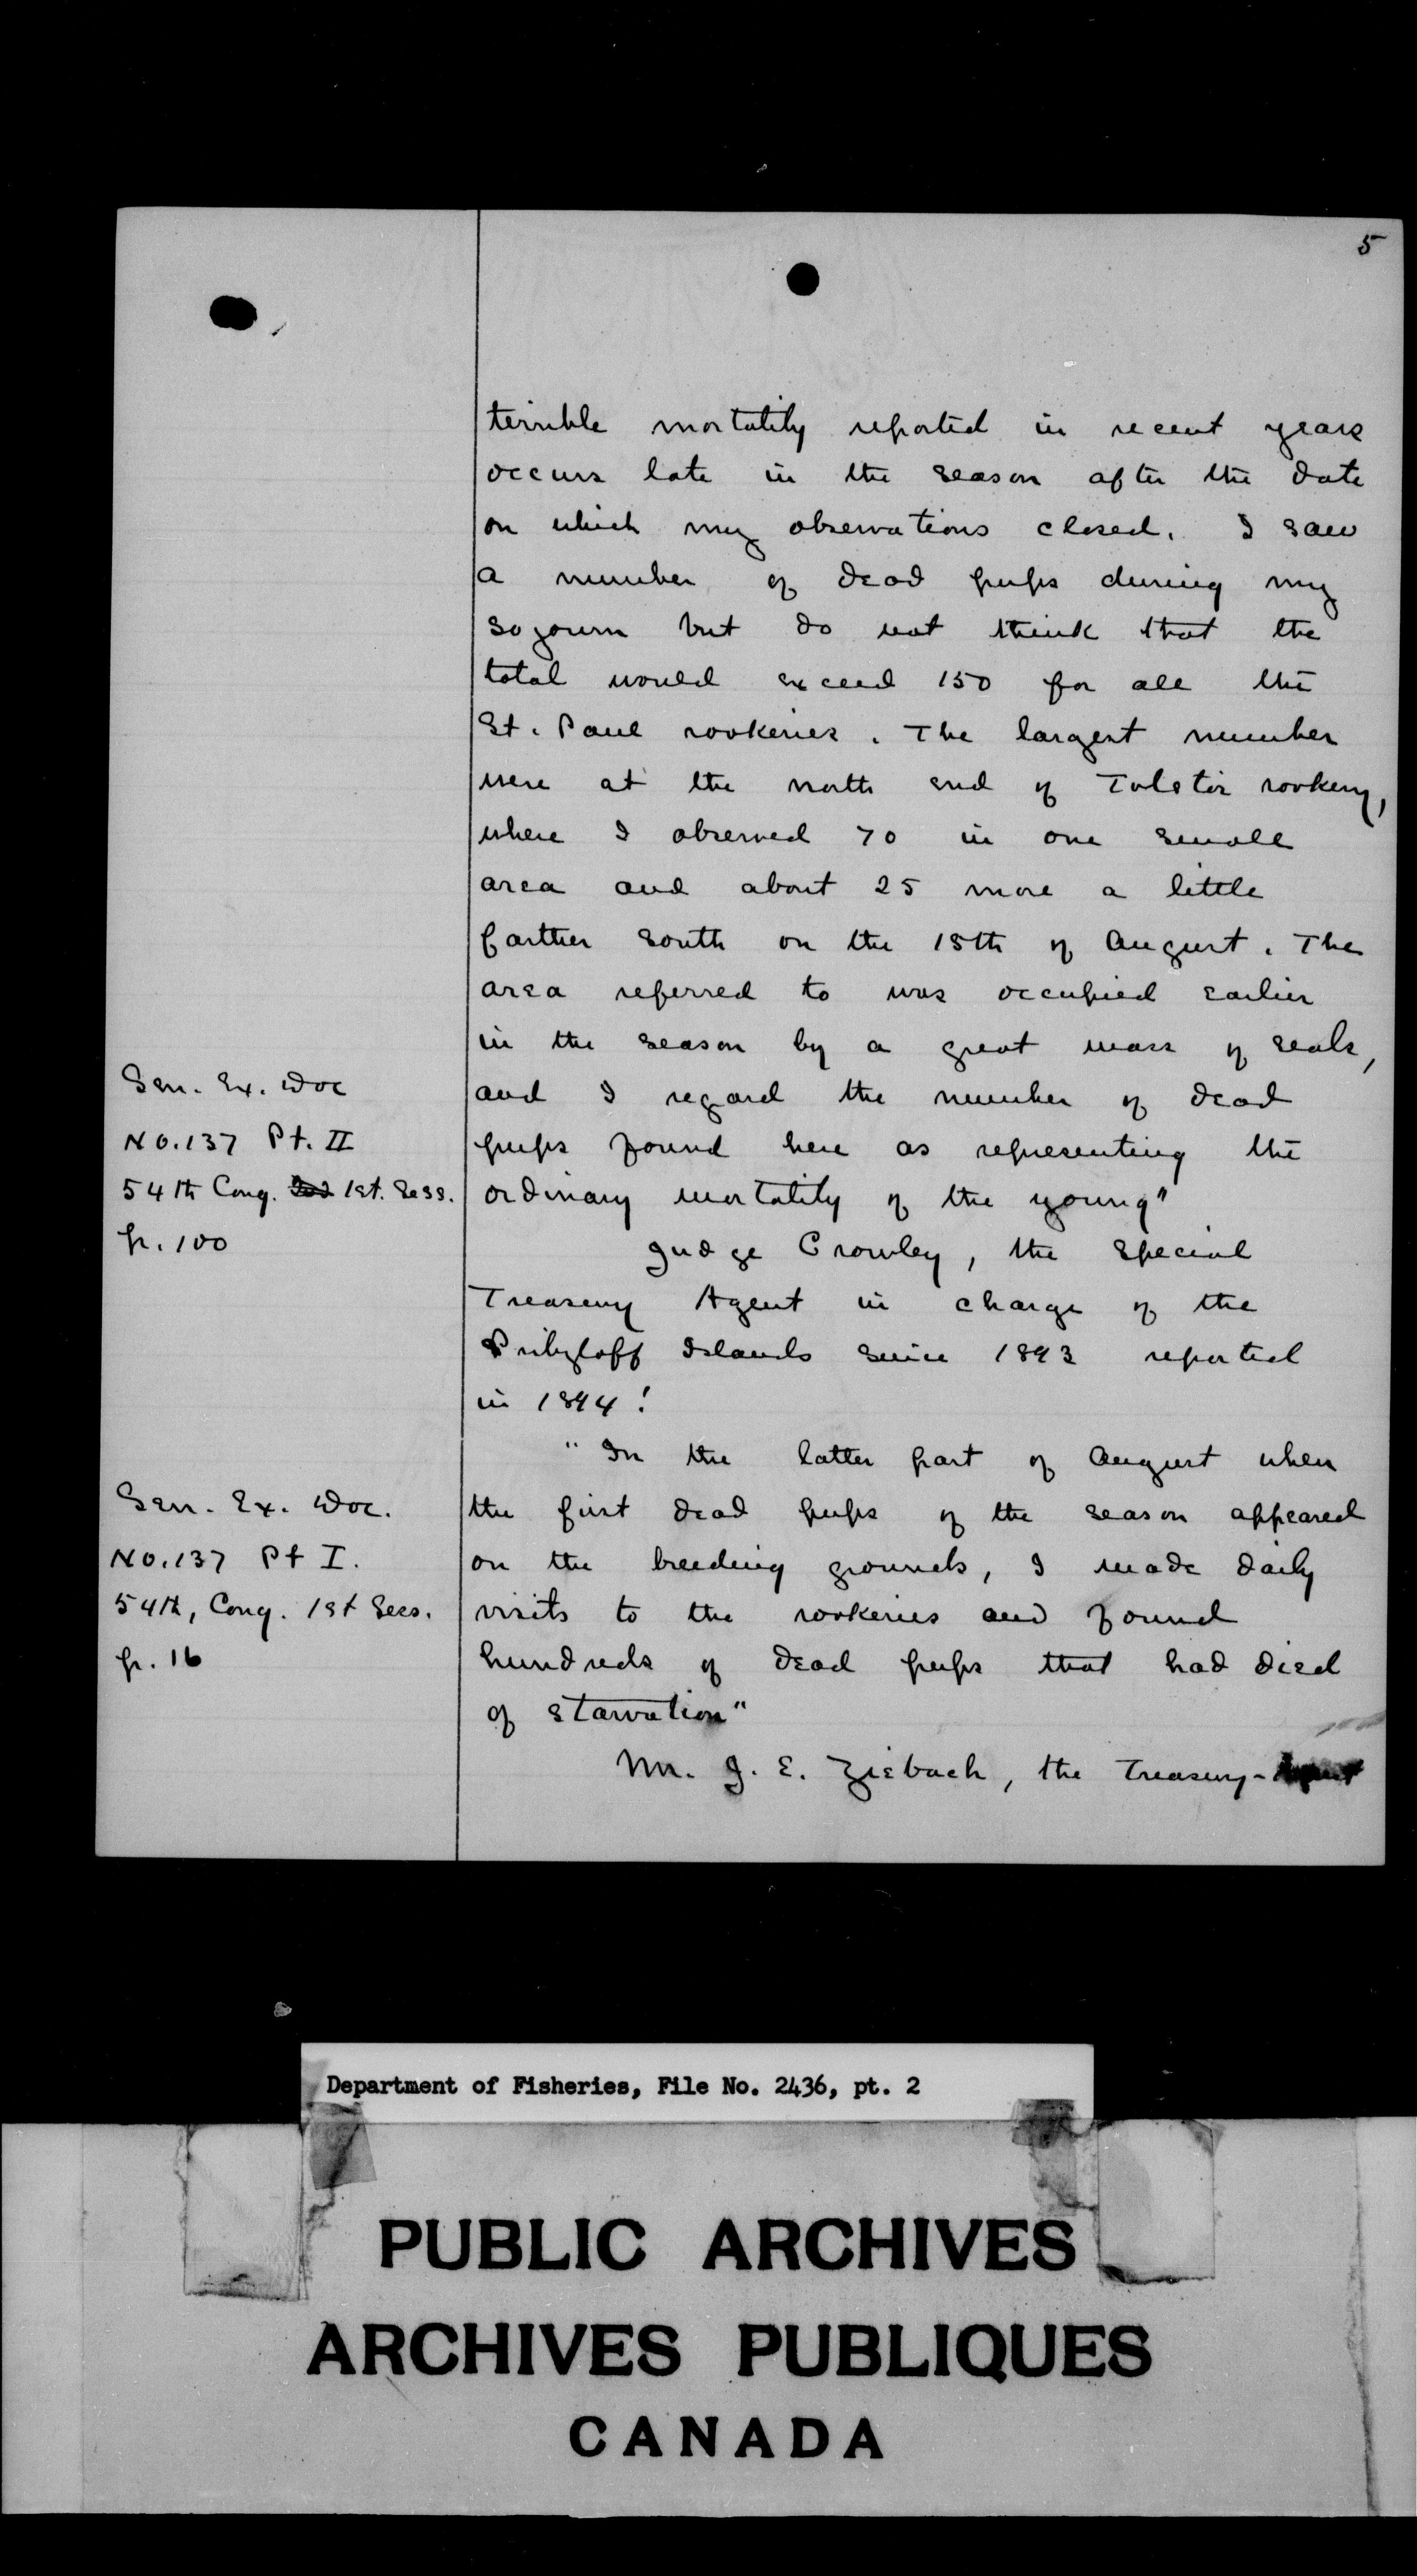 5
terrible mortality reported in recent years
occurs late in the season after the date
on which my observations closed. I saw
a number of dead pups during my
sojourn but do not think that the
total would exceed 150 for all the
St. Paul rookeries. The largest number
were at the north end of Tolstoi rookery,
where I observed 70 in one small
area and about 25 more a little
farther south on the 15th of August. The
area referred to was occupied earlier
in the season by a great mass of seals,
Sen. Ex. Doc
and I regard the number of dead
No. 137 Pt. II
pups found here as representing the
54th Cong. 1st. Sess.
ordinary mortality of the young"
p. 100
Judge Crowley, the Special
Treasury Agent in charge of the
Pribyloff Islands since 1893 reported
in 1894:
"In the latter part of August when
Sen. Ex. Doc.
the first dead pups of the season appeared
No. 137 Pt I.
on the breeding grounds, I made daily
54th, Cong. 1st Sess.
visits to the rookeries and found
p. 16
hundreds of dead pups that had died
of starvation"
Mr. J. E. Ziebach, the Treasury-Agent
Department of Fisheries, File No. 2436, pt. 2
PUBLIC ARCHIVES
ARCHIVES PUBLIQUES
CANADA